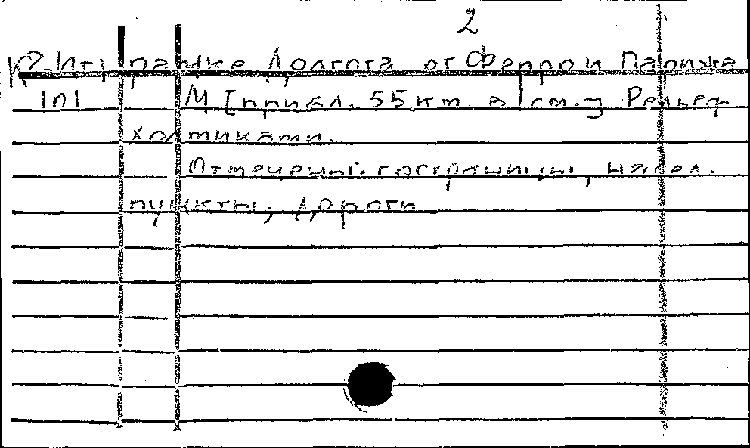 2
рамке Долгота от Ферро и Парижа
М [прибл. 55 км в 1 см.] Рельеф
холмиками.
Отмечены: госграницы, насел.
пункты, дороги